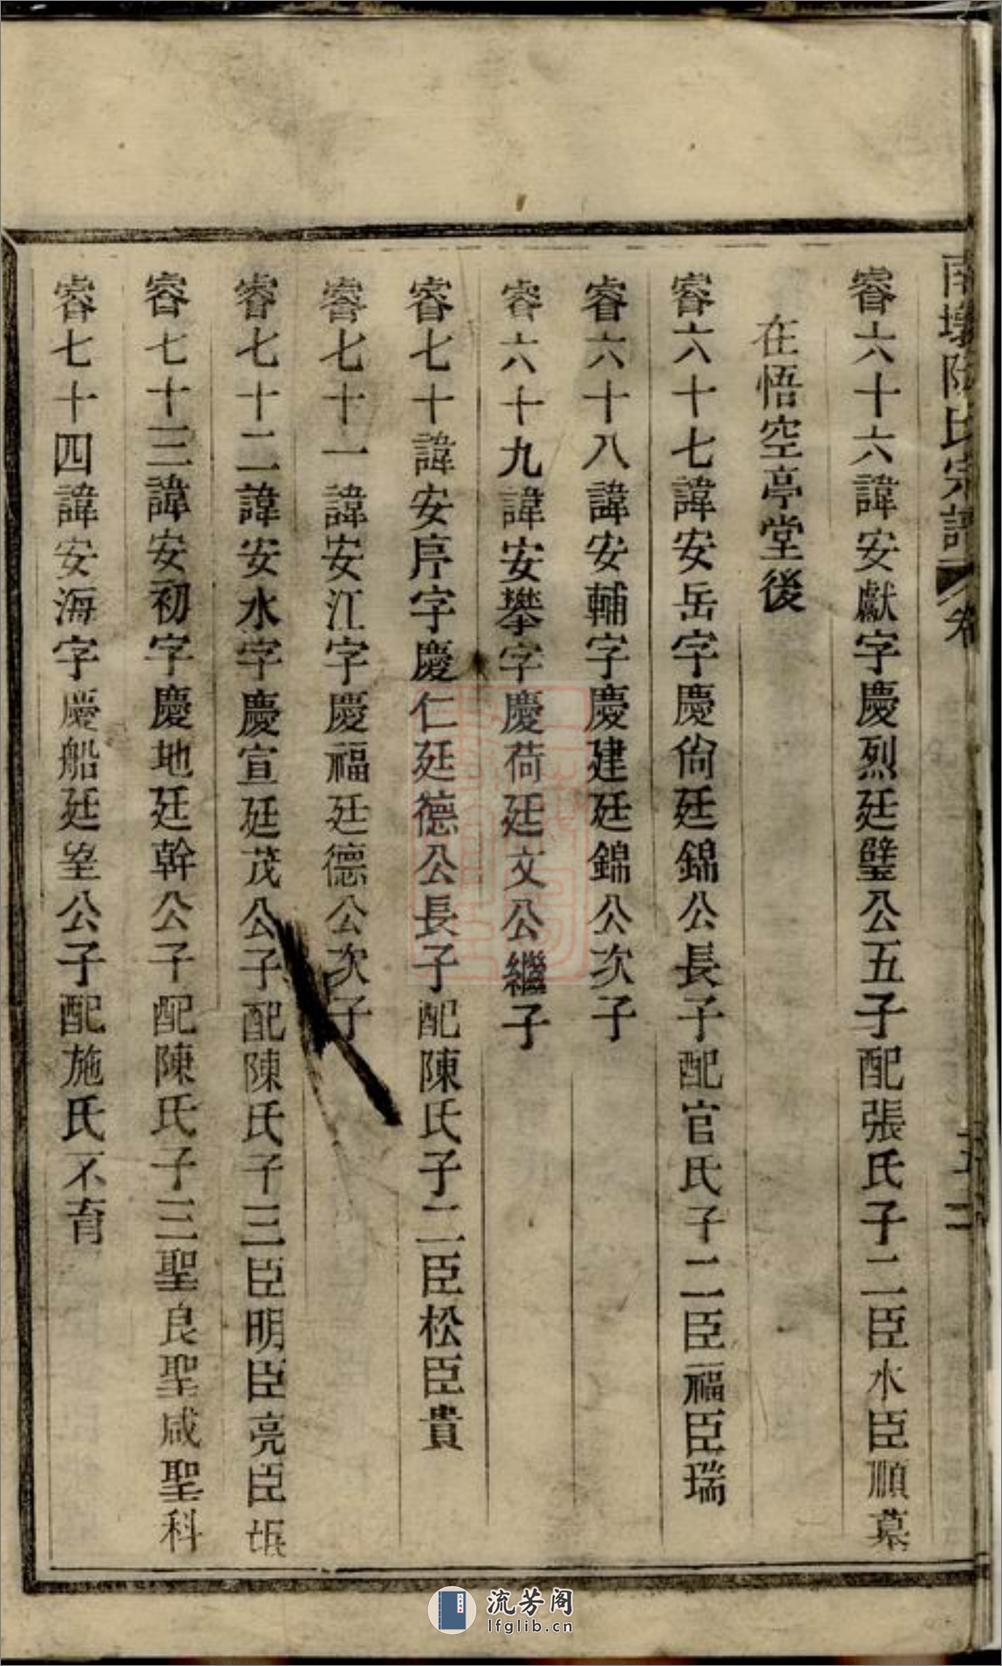 南墩陳氏宗譜 卷
睿六十六諱安獻字慶烈廷璧公五子配張氏子二臣水臣順墓
在悟空亭堂後
睿六十七諱安岳字慶尙廷錦公長子配官氏子二臣福臣瑞
睿六十八諱安輔字慶建廷錦公次子
睿六十九諱安攀字慶荷廷文公繼子
睿七十諱安序字慶仁廷德公長子配陳氏子二臣松臣貴
睿七十一諱安江字慶福廷德公次子
睿七十二諱安水字慶宣廷茂公子配陳氏子三臣明臣亮臣
睿七十三諱安初字慶地廷幹公子配陳氏子三聖良聖咸聖科
睿七十四諱安海字慶船廷坒公子配施氏不育
流芳阁
lfglib.cn